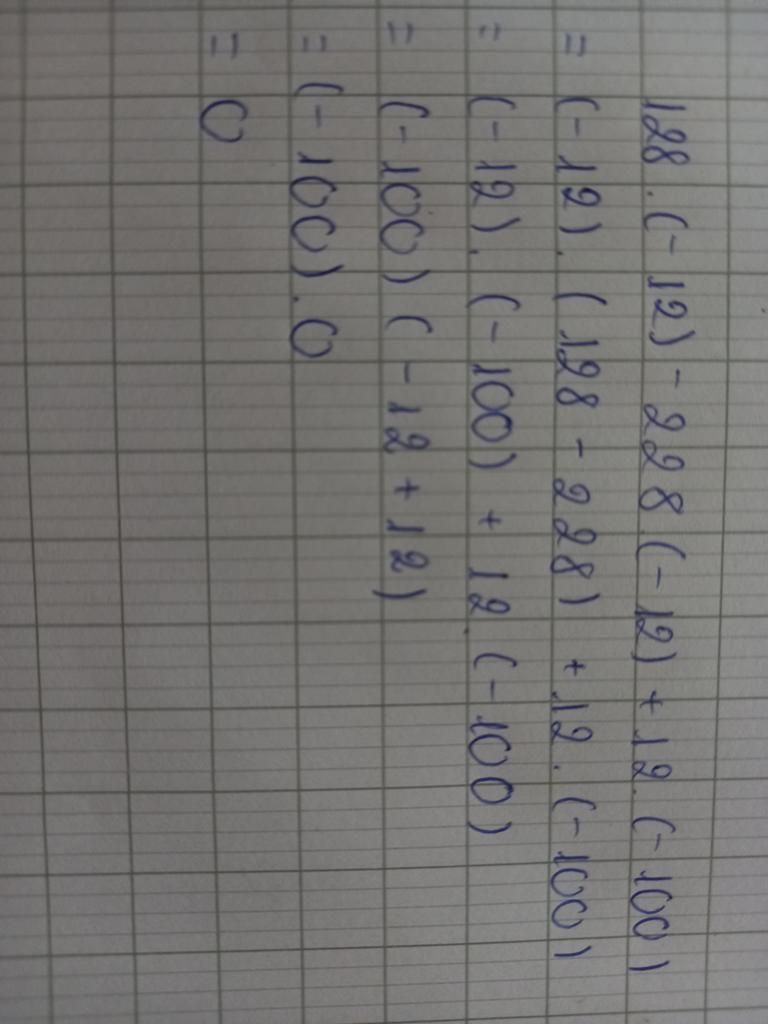 128 . (- 12) - 228 (- 12) + 12 . (- 100)
= (- 12) . ( 128 - 228) + 12 . (- 100)
= (- 12) . (- 100) + 12 . (- 100)
= (- 100) ( - 12 + 12)
= (- 100) . 0
= 0